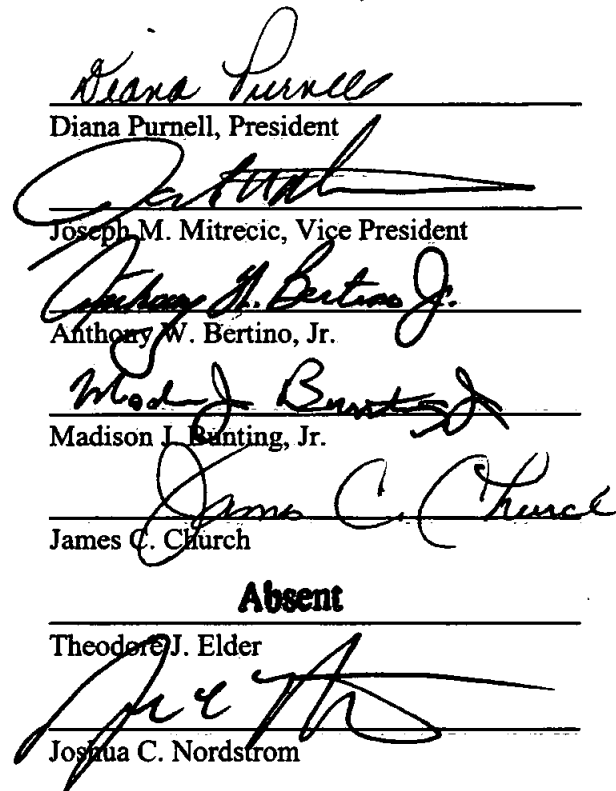 Diana Purnell
Diana Purnell, President
Joseph M. Mitrecic, Vice President
Anthony W. Bertino Jr.
Anthony W. Bertino, Jr.
Madison J. Bunting Jr
Madison J. Bunting, Jr.
James C. Church
James C. Church
Absent
Theodore J. Elder
Joshua C. Nordstrom